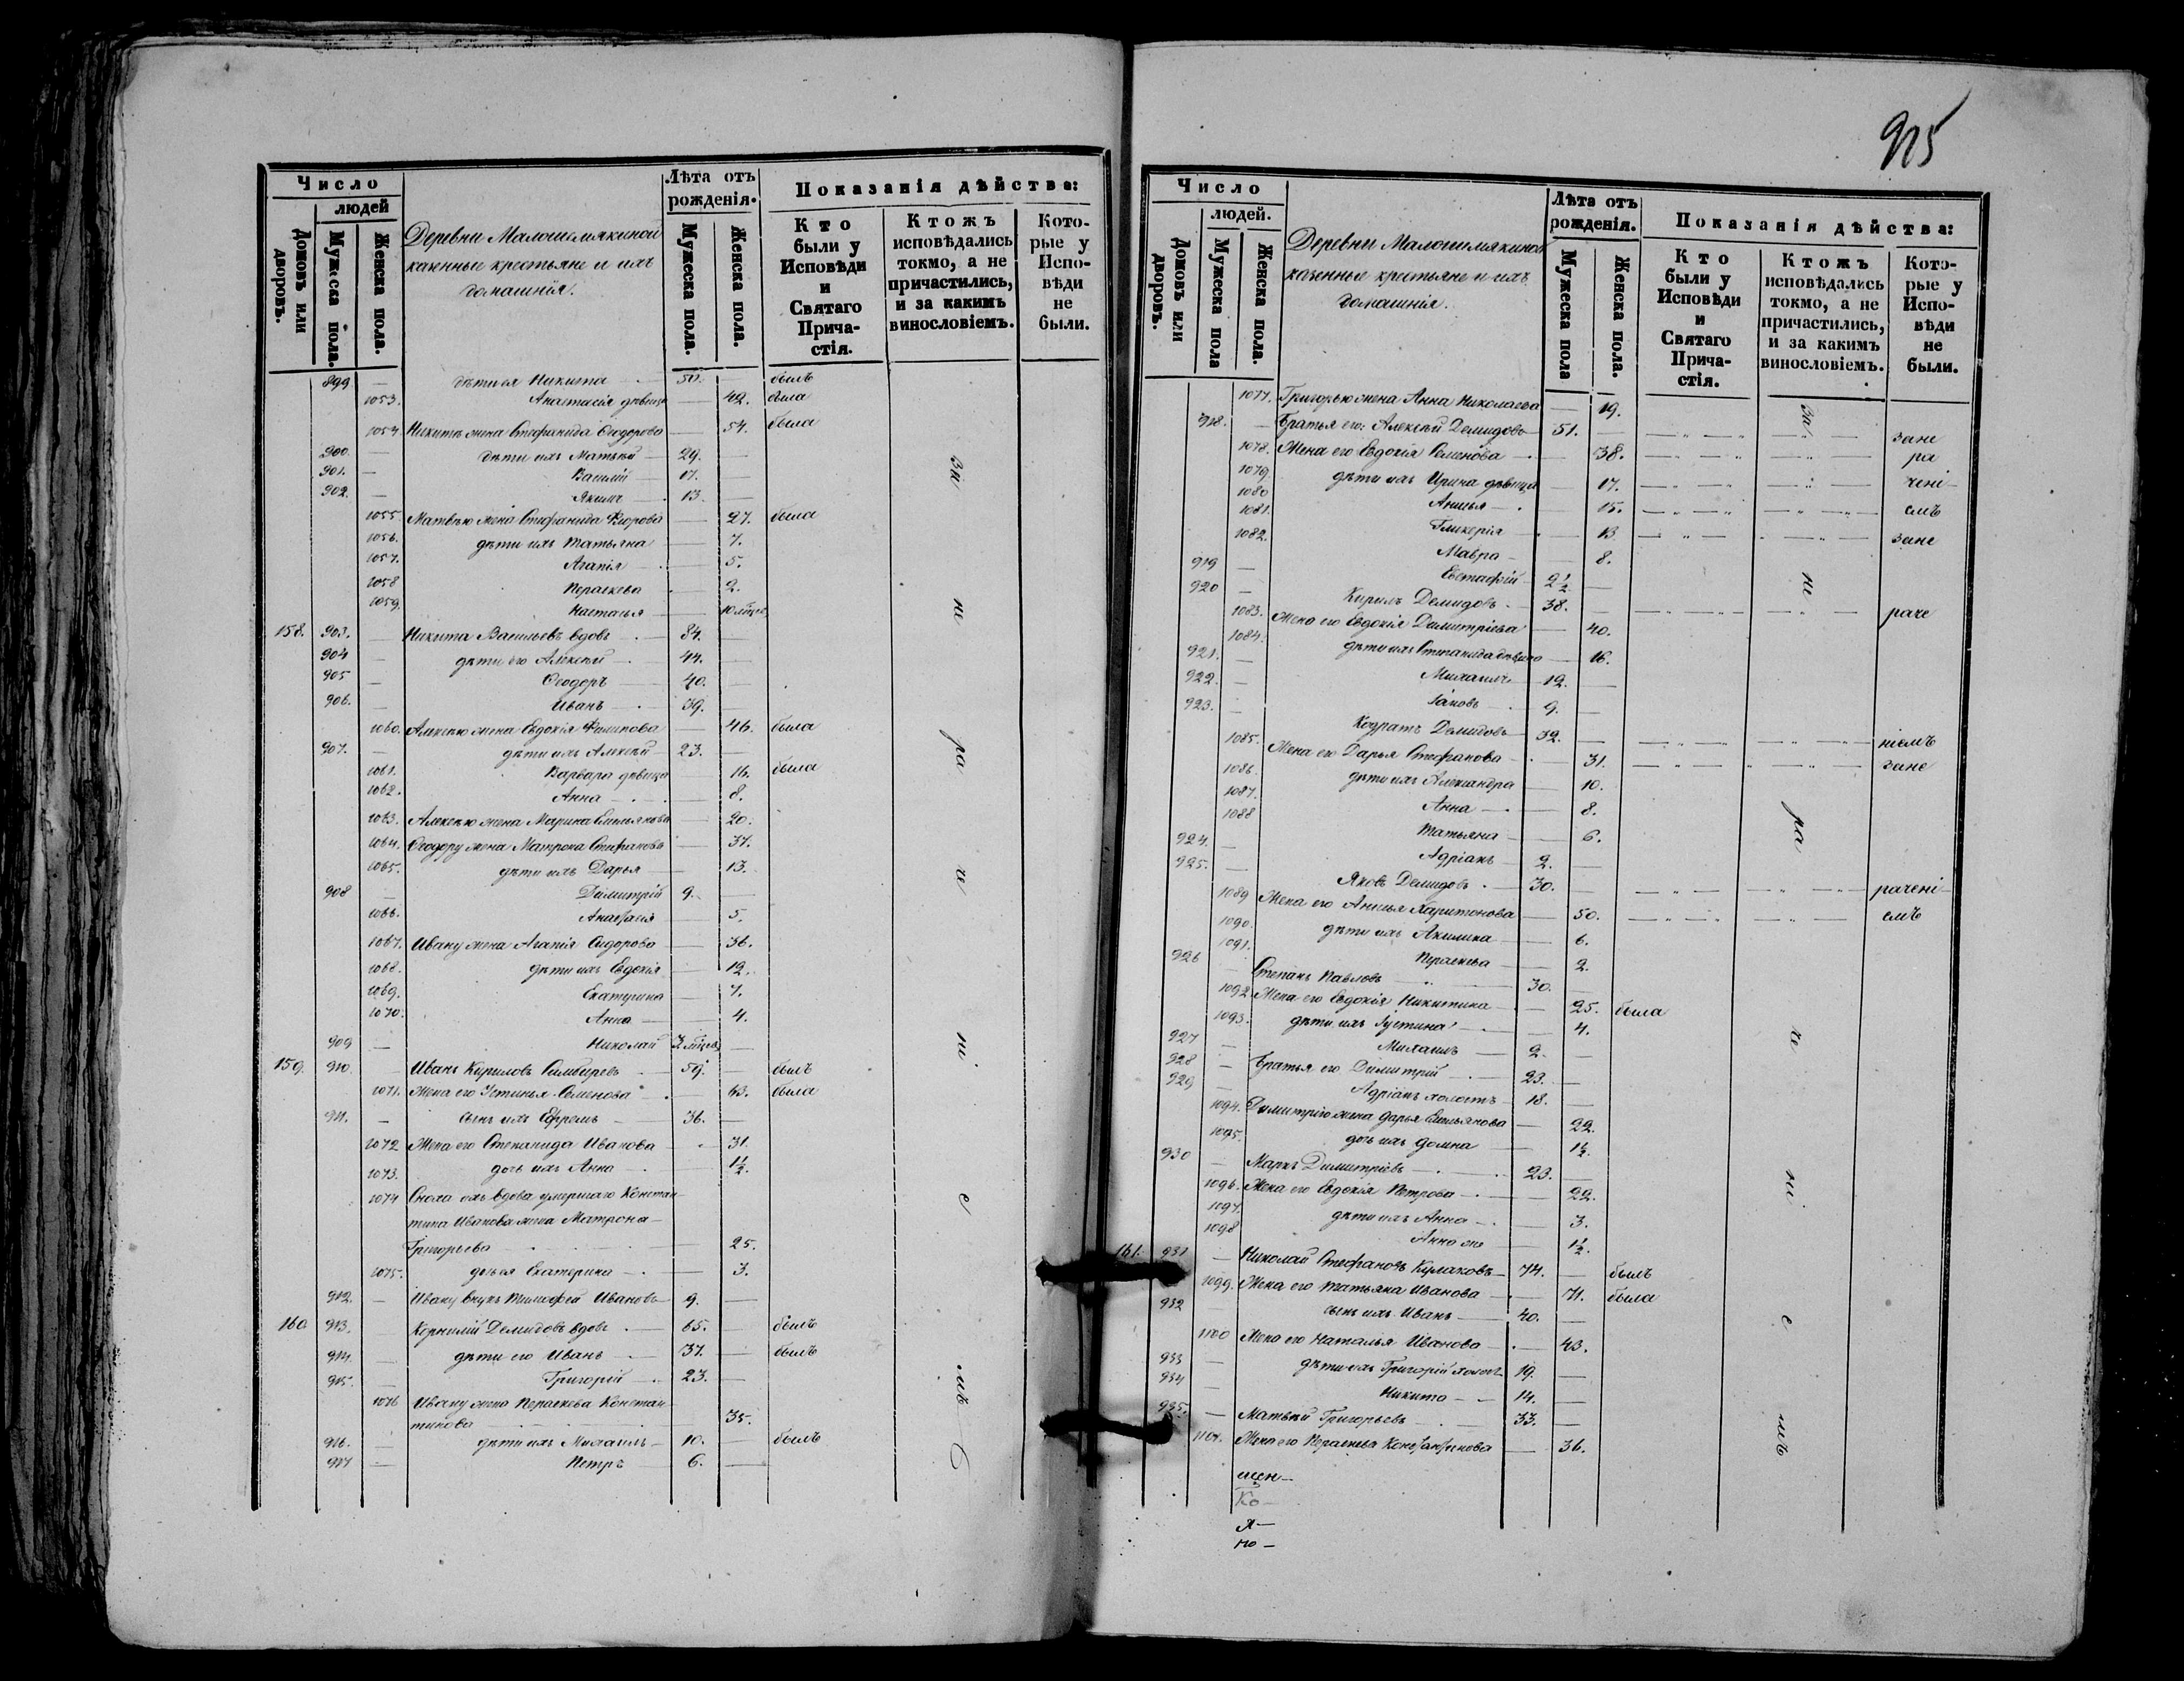 Число
людей
Домовъ или дворовъ.
Мужеска пола.
Женска пола.
Деревни Малошемякиной
казенные крестьяне и ихъ
домашнія.
Лѣта отъ рожденія.
Мужеска пола.
Женска пола.
Показанія дѣйства:
Кто были у Исповѣди и Святаго Причастія.
Ктожъ исповѣдались токмо, а не причастились, и за какимъ винословіемъ.
Которые у Исповѣди не были.
899 — дѣти ея Никита — 50. былъ
1053. Анастасія дѣвица — 42. была
1054. Никиты жена Стефанида Ѳеодорова — 54. была
900. — дѣти ихъ Матвѣй — 29. —
901. — Василій — 17. —
902. — Якимъ — 13. —
1055. Матвѣю жена Стефанида — 27. была
1056. дѣти ихъ Татьяна — 7.
1057. Агапія — 5.
1058 Пераскева — 2.
1059. Настасья — 10 мѣся.
158. 903. — Никита Васильевъ вдовъ — 84. —
904 — дѣти его Алексѣй — 44. —
905 — Ѳеодоръ — 40. —
906. — Иванъ — 39. —
1060. Алексѣю жена Евдокія Филипова — 46. была
907. — дѣти ихъ Алексѣй — 23. —
1061. Варвара дѣвица — 16. была
1062. Анна — 8.
1063. Алексѣю жена Марина Емельянова — 20.
1064. Ѳеодору жена Матрона Стефанова — 37.
1065. дѣти ихъ Дарья — 13.
908 — Димитрій 9. —
1066. Анастасія — 5.
1067. Ивану жена Агапія Сидорова — 36.
1068. дѣти ихъ Евдокія — 12.
1069. Екатерина — 7.
1070. Анна — 4.
909 — Николай —
159. 910. — Иванъ Кириловъ — 59. — былъ
1071. Жена его Устинья Семенова — 63. была
911. — сынъ ихъ Ефремъ — 36. —
1072 Жена его Степанида Иванова — 31.
1073. дочь ихъ Анна — 1½.
1074 Сноха ихъ вдова умершаго Констан-
тина Иванова жена Матрона —
Григорьева — 25.
1075. дочь ея Екатерина — 3.
912. — Ивану внукъ Тимофей Ивановъ — 9. —
160 913. — Корнилій Демидовъ вдовъ — 65. — былъ
914. — дѣти его Иванъ — 37. — былъ
915. — Григорій — 23. —
1076 Ивану жена Пераскева Констан-
тинова — 35.
916. — дѣти ихъ Михаилъ — 10. — былъ
917 — Петръ 6. —
за
не
ра
че
ні
е
мъ
925
Число
людей.
Домовъ или дворовъ.
Мужеска пола
Женска пола.
Деревни Малошемякиной
казенные крестьяне и ихъ
домашнія.
Лѣта отъ рожденія.
Мужеска пола
Женска пола.
Показанія дѣйства:
Кто были у Исповѣди и Святаго Причастія.
Ктожъ исповѣдались токмо, а не причастились, и за какимъ винословіемъ.
Которые у Исповѣди не были.
1077. Григорью жена Анна Николаева — 19.
918. — Братья его: Алексѣй Демидовъ — 51. — зане
1078. Жена его Евдокія Семенова — 38. ра
1079. дѣти ихъ Ирина дѣвица — 17. чені-
1080 Анисья — 15. емъ
1081. Гликерія — 13 зане
1082. Мавра — 8.
919 — Евстафій — 2½ —
920 — Кирилъ Демидовъ — 38. — раче
1083. Жена его Евдокія Димитріева — 40.
1084. дѣти ихъ Степанида дѣвица — 16.
921. — Михаилъ — 12. —
922. — Іаковъ — 9. —
923. — Кодратъ Демидовъ — 32. — ніемъ
1085. Жена его Дарья Стефанова — 31. зане
1086. дѣти ихъ Александра — 10.
1087. Анна — 8.
1088 Татьяна — 6.
924. — Адріанъ — 2. —
925. — Яковъ Демидовъ — 30. — рачені-
1089 Жена его Анисья Харитонова — 50. емъ
1090. дѣти ихъ Акилина — 6.
1091. Пераскева — 2.
926 — Степанъ Павловъ — 30. —
1092. Жена его Евдокія Никитина — 25. была
1093. дѣти ихъ Іустина — 4.
927 — Михаилъ — 2. —
928 — Братья его Димитрій — 23. —
929 — Адріанъ холостъ — 18. —
1094. Димитрію жена Дарья Емельянова — 22.
1095. дочь ихъ Домна — 1½.
930 — Маркъ Димитріевъ — 23. —
1096. Жена его Евдокія Петрова — 22.
1097. дѣти ихъ Анна — 3.
1098 Анна же — 1½.
161. 931 — Николай Стефановъ Кулаковъ — 74. — былъ
1099. Жена его Татьяна Иванова — 71. была
932 сынъ ихъ Иванъ — 40. —
1100 Жена его Наталья Иванова — 43.
933 — дѣти ихъ Григорій холост. 19. —
934 — Никита — 14. —
935. — Матвѣй Григорьевъ — 33. —
1101. Жена его Пераскева Константинова — 36.
за
не
ра
че
ні
е
мъ
Ко —
я —
но —